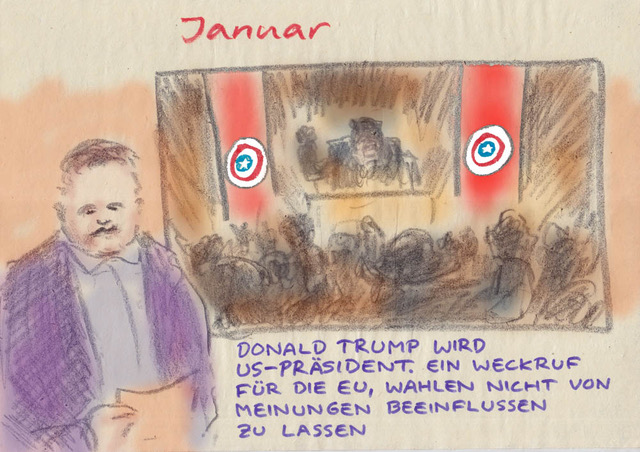 Januar
DONALD TRUMP WIRD
US-PRÄSIDENT. EIN WECKRUF
FÜR DIE EU, WAHLEN NICHT VON
MEINUNGEN BEEINFLUSSEN
ZU LASSEN